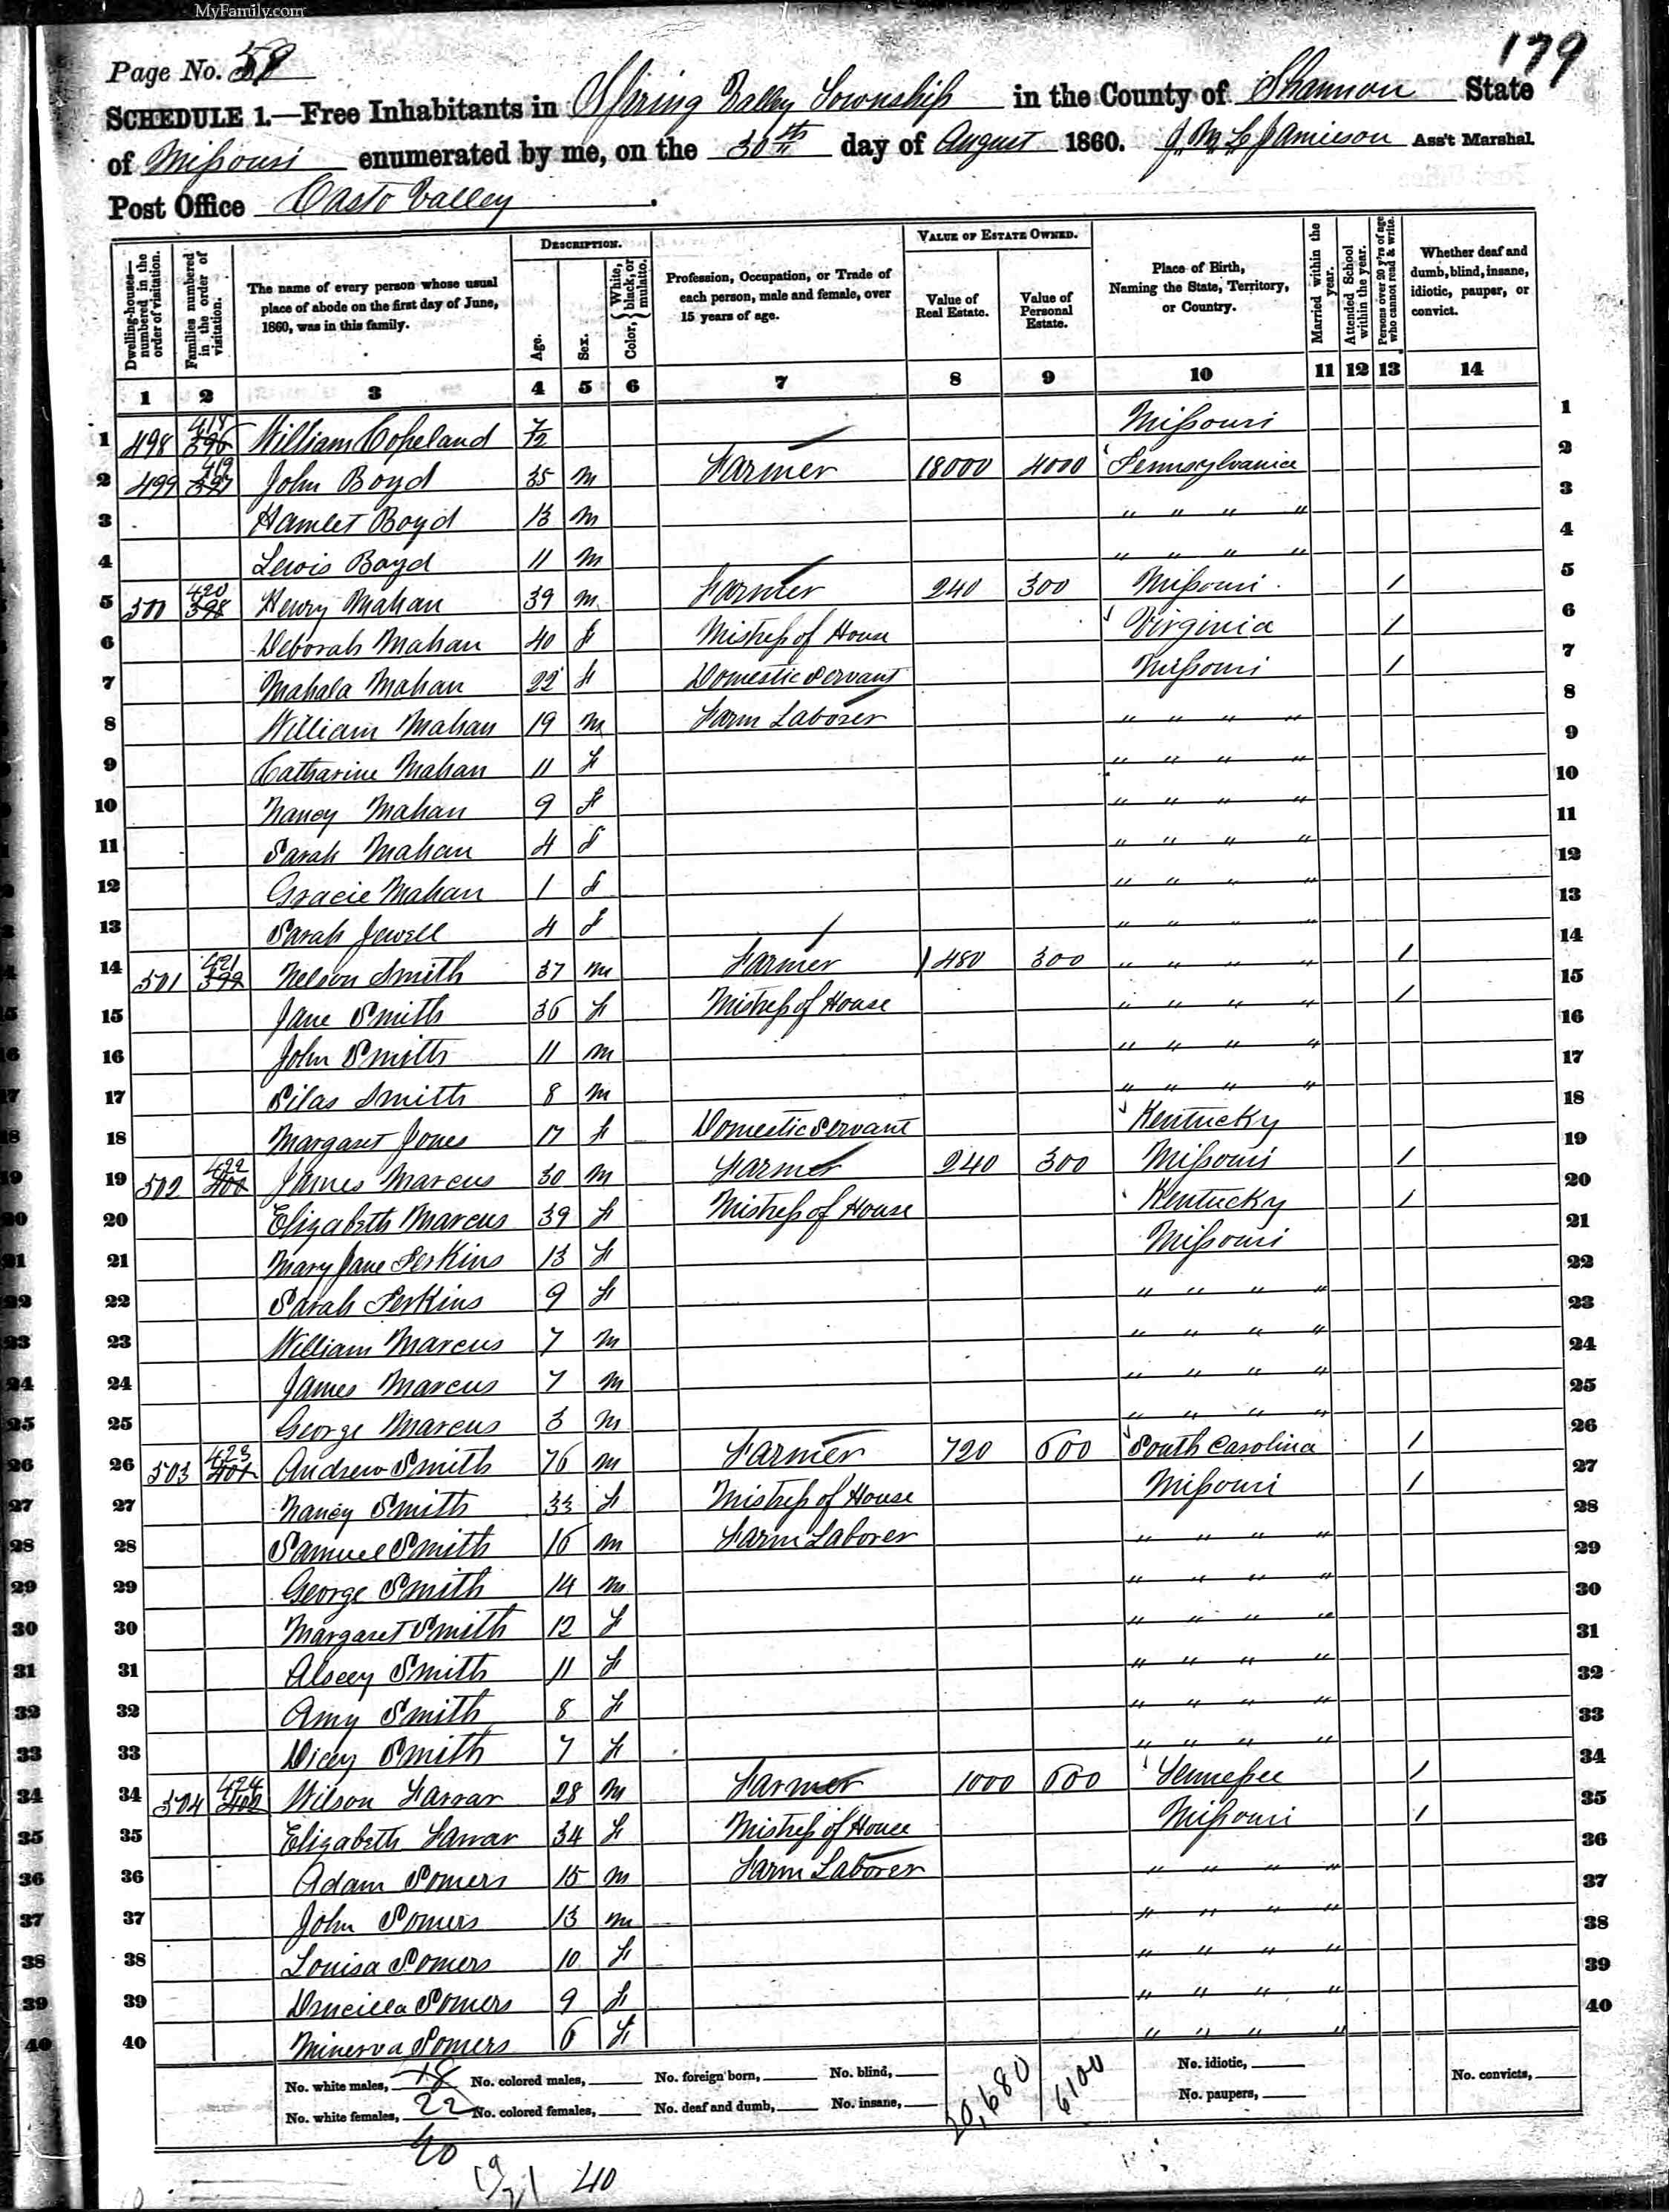 MyFamily.com
179
Page No. 58
SCHEDULE 1.—Free Inhabitants in Spring Valley Township in the County of Shannon State
of Missouri enumerated by me, on the 30th day of August 1860. J. M. C. Jamieson Ass't Marshal.
Post Office Casto Valley.
Dwelling-houses—numbered in the order of visitation.
Families numbered in the order of visitation.
The name of every person whose usual place of abode on the first day of June, 1860, was in this family.
DESCRIPTION.
Age.
Sex.
Color, { White, black, or mulatto.
Profession, Occupation, or Trade of each person, male and female, over 15 years of age.
VALUE OF ESTATE OWNED.
Value of Real Estate.
Value of Personal Estate.
Place of Birth, Naming the State, Territory, or Country.
Married within the year.
Attended School within the year.
Persons over 20 y'rs of age who cannot read & write.
Whether deaf and dumb, blind, insane, idiotic, pauper, or convict.
1 2 3 4 5 6 7 8 9 10 11 12 13 14
1 498 418 396 William Copeland 7/12 Missouri 1
2 499 419 397 John Boyd 35 m Farmer 18000 4000 Pennsylvania 2
3 Hamlet Boyd 13 m " " " " 3
4 Lewis Boyd 11 m " " " " 4
5 500 420 398 Henry Mahan 39 m Farmer 240 300 Missouri / 5
6 Deborah Mahan 40 f Mistress of House Virginia / 6
7 Mahala Mahan 22 f Domestic Servant Missouri / 7
8 William Mahan 19 m Farm Laborer " " " " 8
9 Catharine Mahan 11 f " " " " 9
10 Nancy Mahan 9 f " " " " 10
11 Sarah Mahan 4 f " " " " 11
12 Gracie Mahan 1 f " " " " 12
13 Sarah Jewell 4 f " " " " 13
14 501 421 399 Nelson Smith 37 m Farmer 1480 300 " " " " / 14
15 Jane Smith 36 f Mistress of House " " " " / 15
16 John Smith 11 m " " " " 16
17 Silas Smith 8 m " " " " 17
18 Margaret Jones 17 f Domestic Servant Kentucky 18
19 502 422 400 James Marcus 30 m Farmer 240 300 Missouri / 19
20 Elizabeth Marcus 39 f Mistress of House Kentucky / 20
21 Mary Jane Perkins 13 f Missouri 21
22 Sarah Perkins 9 f " " " " 22
23 William Marcus 7 m " " " " 23
24 James Marcus 7 m " " " " 24
25 George Marcus 3 m " " " " 25
26 503 423 401 Andrew Smith 76 m Farmer 720 600 South Carolina / 26
27 Nancy Smith 33 f Mistress of House Missouri / 27
28 Samuel Smith 16 m Farm Laborer " " " " 28
29 George Smith 14 m " " " " 29
30 Margaret Smith 12 f " " " " 30
31 Alsey Smith 11 f " " " " 31
32 Amy Smith 8 f " " " " 32
33 Dicey Smith 7 f " " " " 33
34 504 424 402 Wilson Farrar 28 m Farmer 1000 600 Tennessee / 34
35 Elizabeth Farrar 34 f Mistress of House Missouri / 35
36 Adam Somers 15 m Farm Laborer " " " " 36
37 John Somers 13 m " " " " 37
38 Louisa Somers 10 f " " " " 38
39 Drucilla Somers 9 f " " " " 39
40 Minerva Somers 6 f " " " " 40
No. white males, 18 No. colored males, No. foreign born, No. blind, 20,680 6100 No. idiotic, No. convicts,
No. white females, 22 No. colored females, No. deaf and dumb, No. insane, No. paupers,
40
40